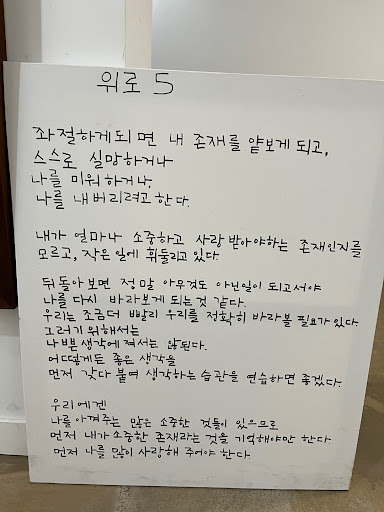 위로 5
좌절하게되면 내 존재를 얕보게 되고,
스스로 실망하거나
나를 미워하거나,
나를 내버리려고 한다.
내가 얼마나 소중하고 사랑받아야하는 존재인지를
모르고, 작은 일에 휘둘리고 있다.
뒤돌아보면 정말 아무것도 아닌일이 되고서야
나를 다시 바라보게 되는것 같다.
우리는 조금더 빨리 우리를 정확히 바라볼 필요가 있다.
그러기 위해서는
나쁜생각에 져서는 않된다.
어떻게든 좋은 생각을
먼저 갖다 붙여 생각하는 습관을 연습하면 좋겠다.
우리에겐
나를 아껴주는 많은 소중한 것들이 있으므로
먼저 내가 소중한 존재라는 것을 기억해야만 한다.
먼저 나를 많이 사랑해 주어야 한다.